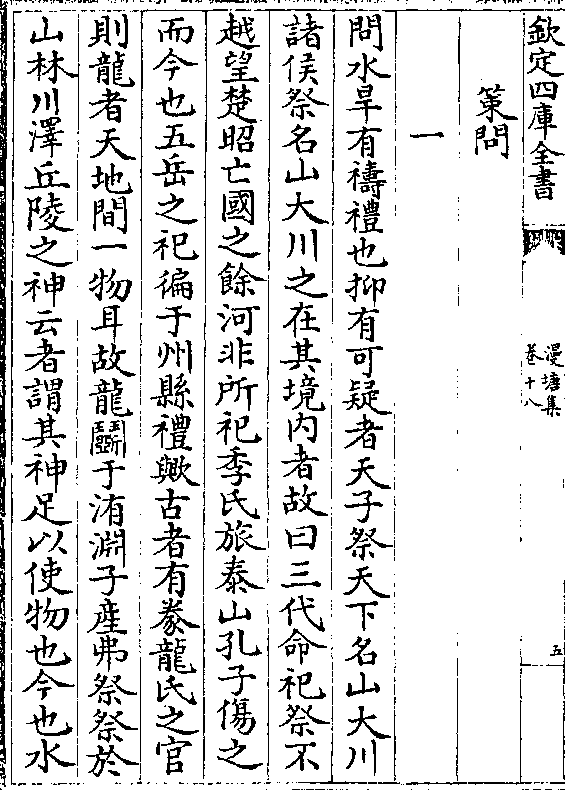 欽定四庫全書
漫塘集
卷十八
五
策問
一
問水旱有禱禮也抑有可疑者天子祭天下名山大川
諸侯祭名山大川之在其境内者故曰三代命祀祭不
越望楚昭亡國之餘河非所祀季氏旅泰山孔子傷之
而今也五岳之祀徧于州縣禮歟古者有豢龍氏之官
則龍者天地間一物耳故龍鬬于洧淵子産弗祭祭於
山林川澤丘陵之神云者謂其神足以使物也今也水